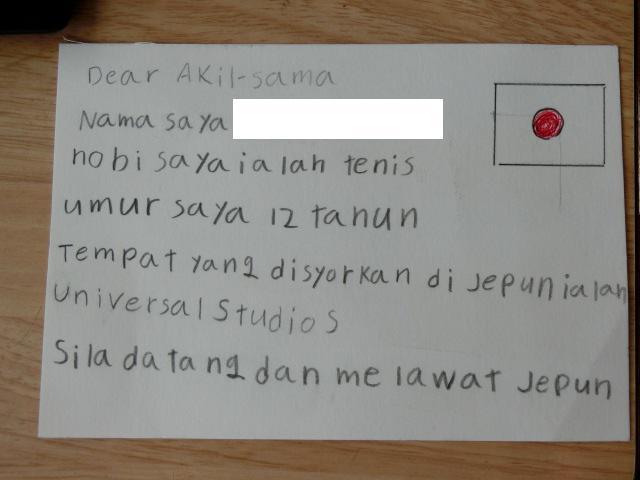 Dear AKil-sama
Nama saya
hobi saya ialah tenis
umur saya 12 tahun
Tempat yang disyorkan di Jepun ialah
Universal Studios
Sila datang dan melawat Jepun